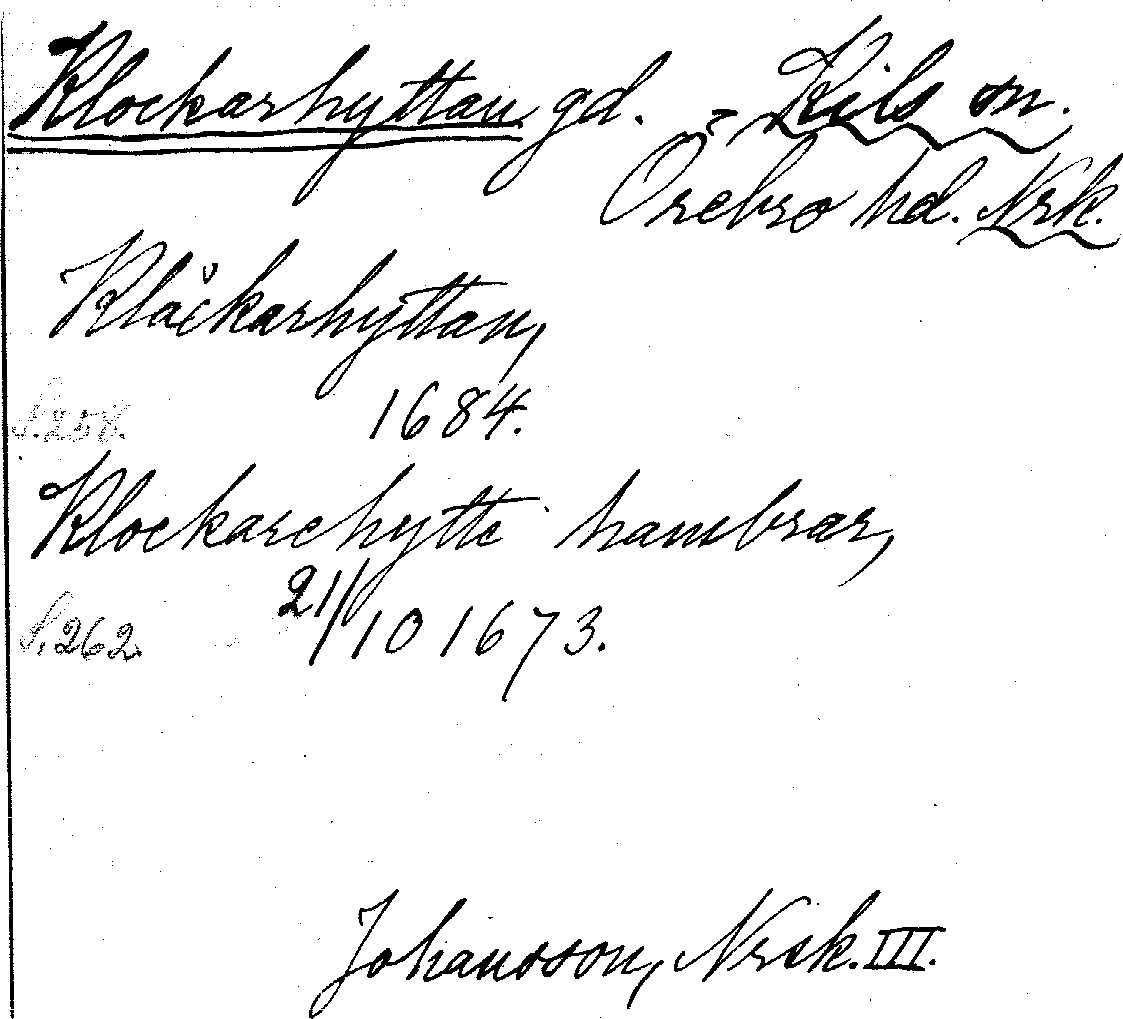 Klockarhyttan gd. - Kils sn.
Örebro hd. Nrk.
Klåckarhyttan,
S. 258. 1684.
Klockarehytte hambrar,
S. 262. 21/10 1673.
Johansson, Nrsk. III.